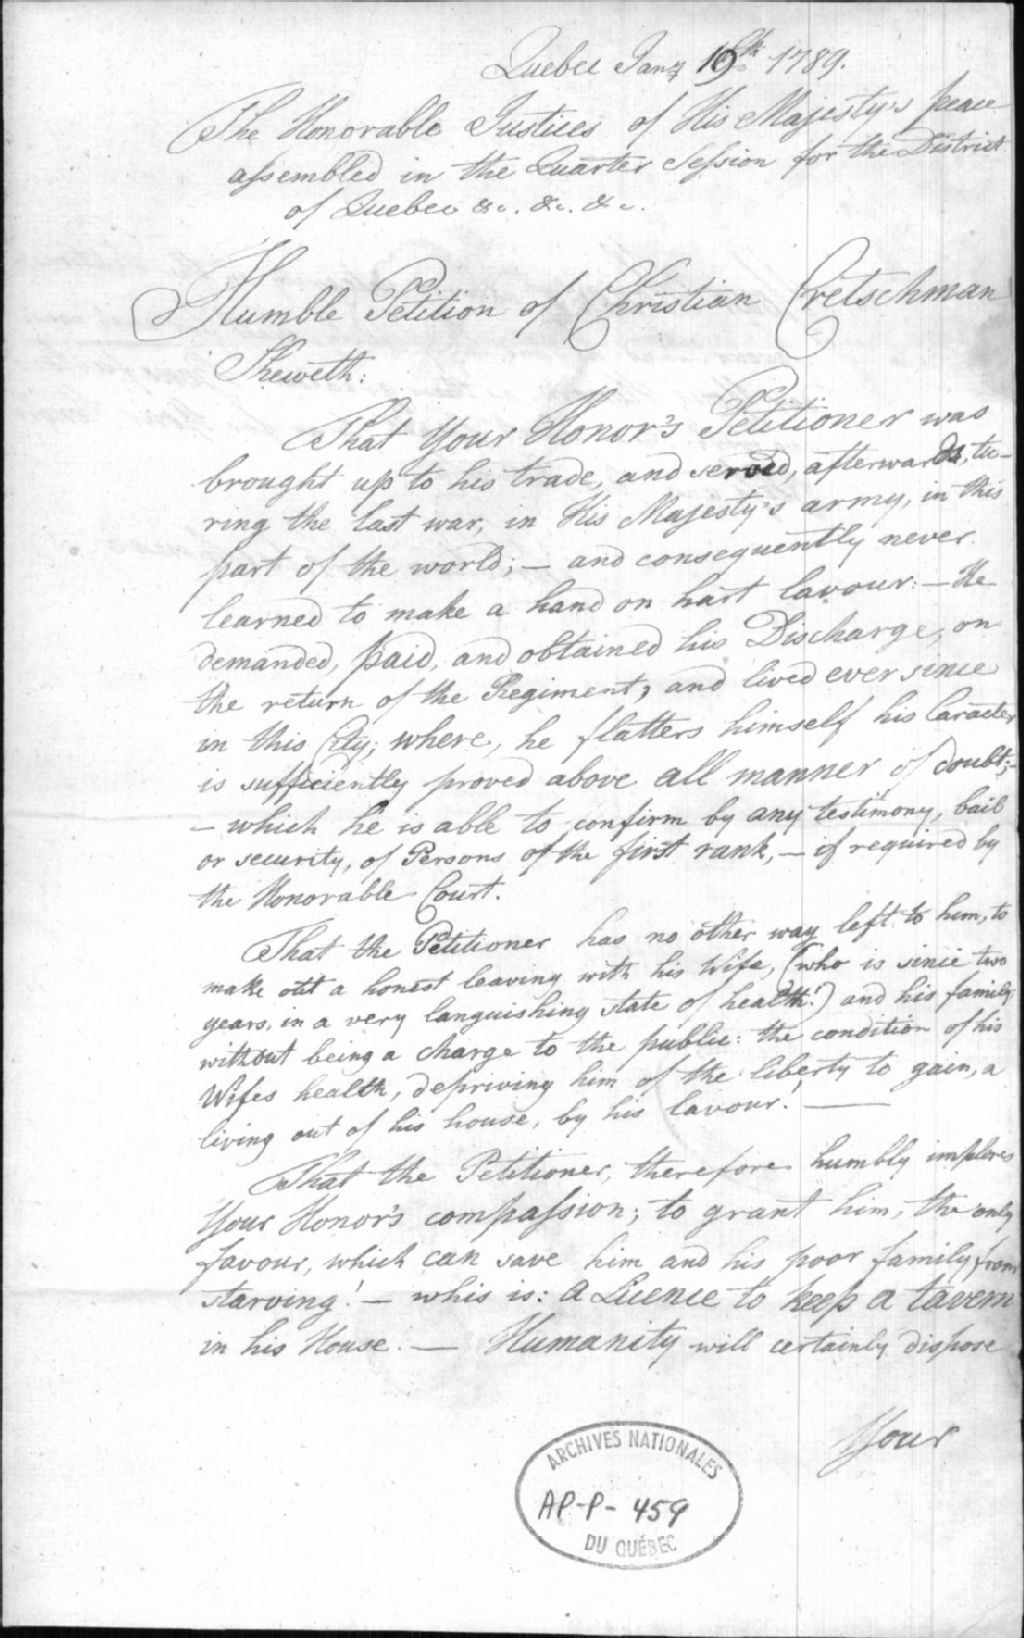 Quebec Jany 19th 1789.
The Honorable Justices of His Majesty's peace
assembled in the Quarter Session for the District
of Quebec &c. &c. &c.
Humble Petition of Christian Cretschman
Sheweth:
That Your Honor's Petitioner was
brought up to his trade, and served, afterwards, du-
ring the last war, in His Majesty's army, in this
part of the world; — and consequently never
learned to make a hand on hart lavour: — He
demanded, paid, and obtained his Discharge, on
the return of the Regiment, and lived ever since
in this City; where, he flatters himself his Caracter
is sufficiently proved above all manner of doubt; —
— which he is able to confirm by any testimony, bail
or security, of Persons of the first rank, — if required by
the Honorable Court.
That the Petitioner has no other way left to him, to
make out a honest leaving with his Wife, (who is since two
years, in a very languishing state of health!) and his family,
without being a charge to the public: the condition of his
Wifes health, depriving him of the liberty to gain, a
living out of his house, by his lavour! —
That the Petitioner, therefore humbly implores
Your Honor's compassion; to grant him, the only
favour, which can save him and his poor family from
starving! — whis is: a Licence to keep a tavern
in his House. — Humanity will certainly dispose
Your
ARCHIVES NATIONALES
AP-P-459
DU QUÉBEC